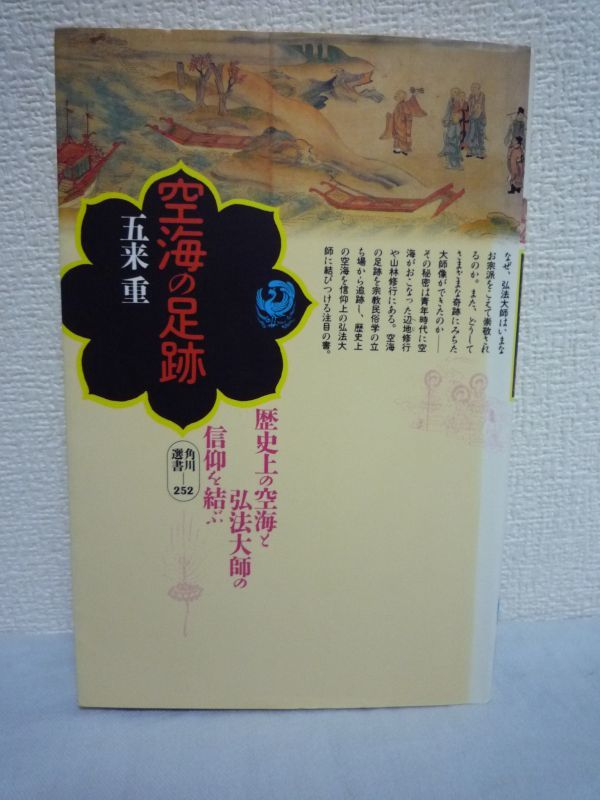 空海の足跡
五来 重
なぜ、弘法大師はいまな
お宗派をこえて崇敬され
るのか。また、どうして
さまざまな奇跡にみちた
大師像ができたのか──
その秘密は青年時代に空
海がおこなった辺地修行
や山林修行にある。空海
の足跡を宗教民俗学の立
ち場から追跡し、歴史上
の空海を信仰上の弘法大
師に結びつける注目の書。
歴史上の空海と
弘法大師の
信仰を結ぶ
角川
選書─252